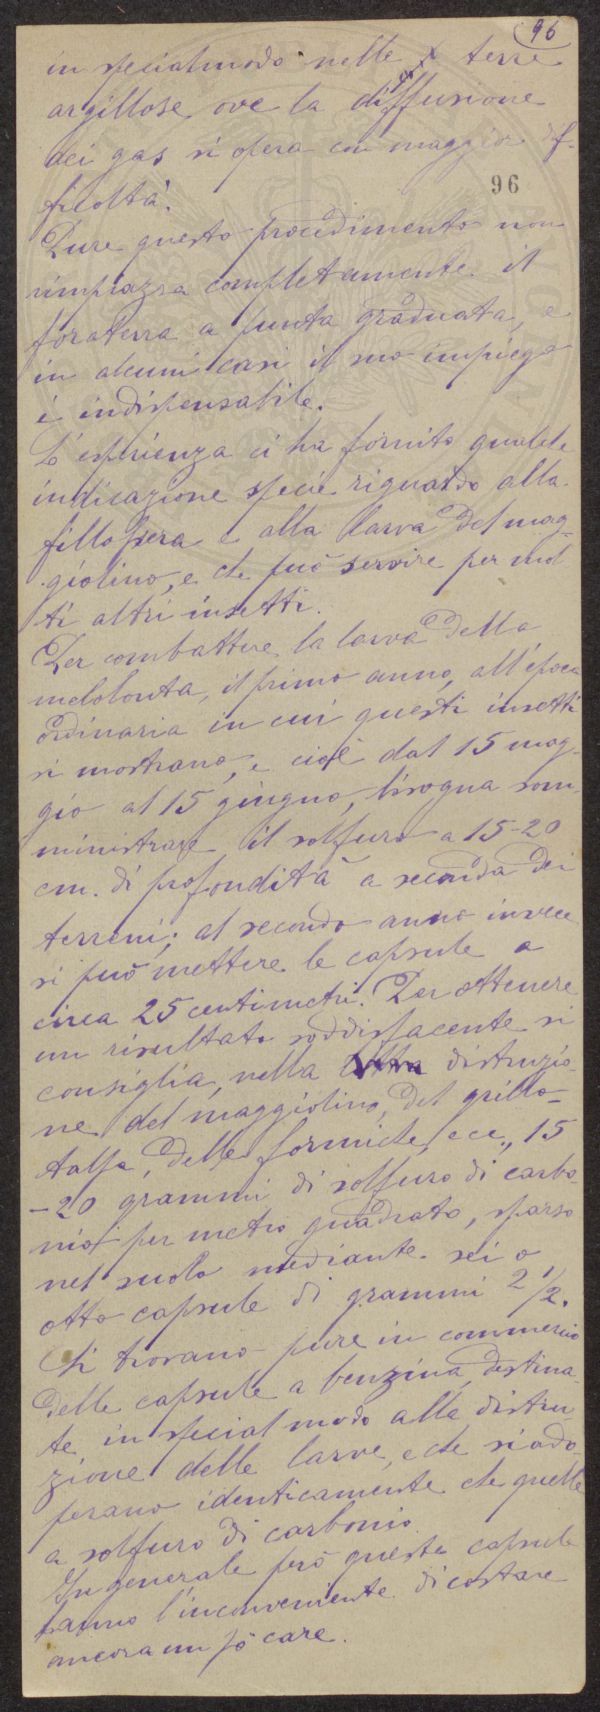 96
in specialmodo nelle terre
argillose ove la diffusione
dei gas si opera con maggior dif-
96
ficoltà.
Pure questo procedimento non
rimpiazza completamente il
foraterra a punta graduata, e
in alcuni casi il suo impiego
è indispensabile.
L'esperienza ci ha fornito qualche
indicazione specie riguardo alla
fillossera e alla larva del mag-
giolino, e che può servire per mol
ti altri insetti.
Per combattere la larva della
melolonta, il primo anno, all'epoca
ordinaria in cui questi insetti
si mostrano, e cioè dal 15 mag-
gio al 15 giugno, bisogna som
ministrare il solfuro a 15-20
cm. di profondità a seconda dei
terreni; al secondo anno invece
si può mettere le capsule a
circa 25 centimetri. Per ottenere
un risultato soddisfacente si
consiglia, nella distruzio-
ne del maggiolino, del grillo-
talpa, delle formiche, ecc., 15
-20 grammi di solfuro di carbo-
nio per metro quadrato, sparso
nel suolo mediante sei o
otto capsule di grammi 2 1/2.
Si trovano pure in commercio
delle capsule a benzina destina-
te in special modo alla distru
zione delle larve, e che si ado-
perano identicamente che quelle
a solfuro di carbonio.
In generale però queste capsule
hanno l'inconveniente di costare
ancora un pò care.